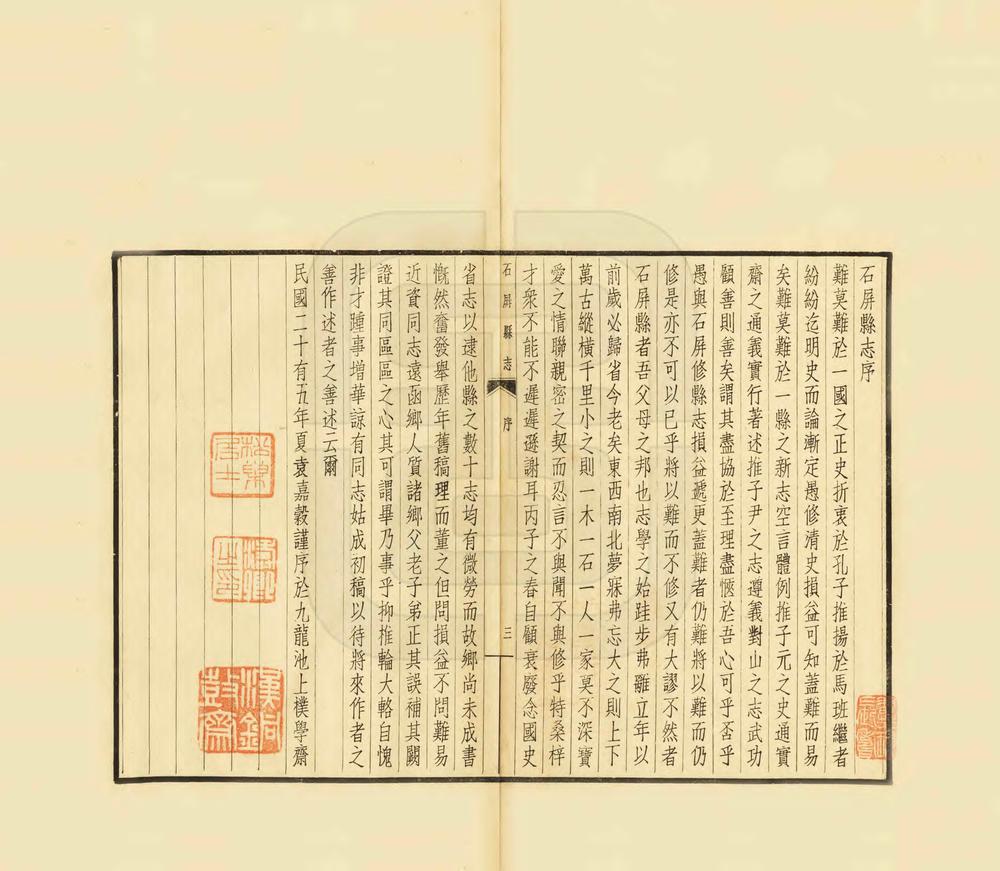 石屏縣志序
難莫難於一國之正史折衷於孔子推揚於馬班繼者
紛紛迄明史而論漸定愚修清史損益可知蓋難而易
矣難莫難於一縣之新志空言體例推子元之史通實
齋之通義實行著述推子尹之志遵義對山之志武功
顧善則善矣謂其盡協於至理盡愜於吾心可乎否乎
愚與石屏修縣志損益遞更蓋難者仍難將以難而仍
修是亦不可以已乎將以難而不修又有大謬不然者
石屏縣者吾父母之邦也志學之始跬步弗離立年以
前歲必歸省今老矣東西南北夢寐弗忘大之則上下
萬古縱橫千里小之則一木一石一人一家莫不深寶
愛之情聯親密之契而忍言不與聞不與修乎特桑梓
才衆不能不遲遲遜謝耳丙子之春自顧衰廢念國史
石屏縣志 序 三
省志以逮他縣之數十志均有微勞而故鄉尚未成書
慨然奮發舉歷年舊稿理而董之但問損益不問難易
近資同志遠函鄉人質諸鄉父老子弟正其誤補其闕
證其同區區之心其可謂畢乃事乎抑椎輪大輅自愧
非才踵事增華諒有同志姑成初稿以待將來作者之
善作述者之善述云爾
民國二十有五年夏袁嘉穀謹序於九龍池上樸學齋